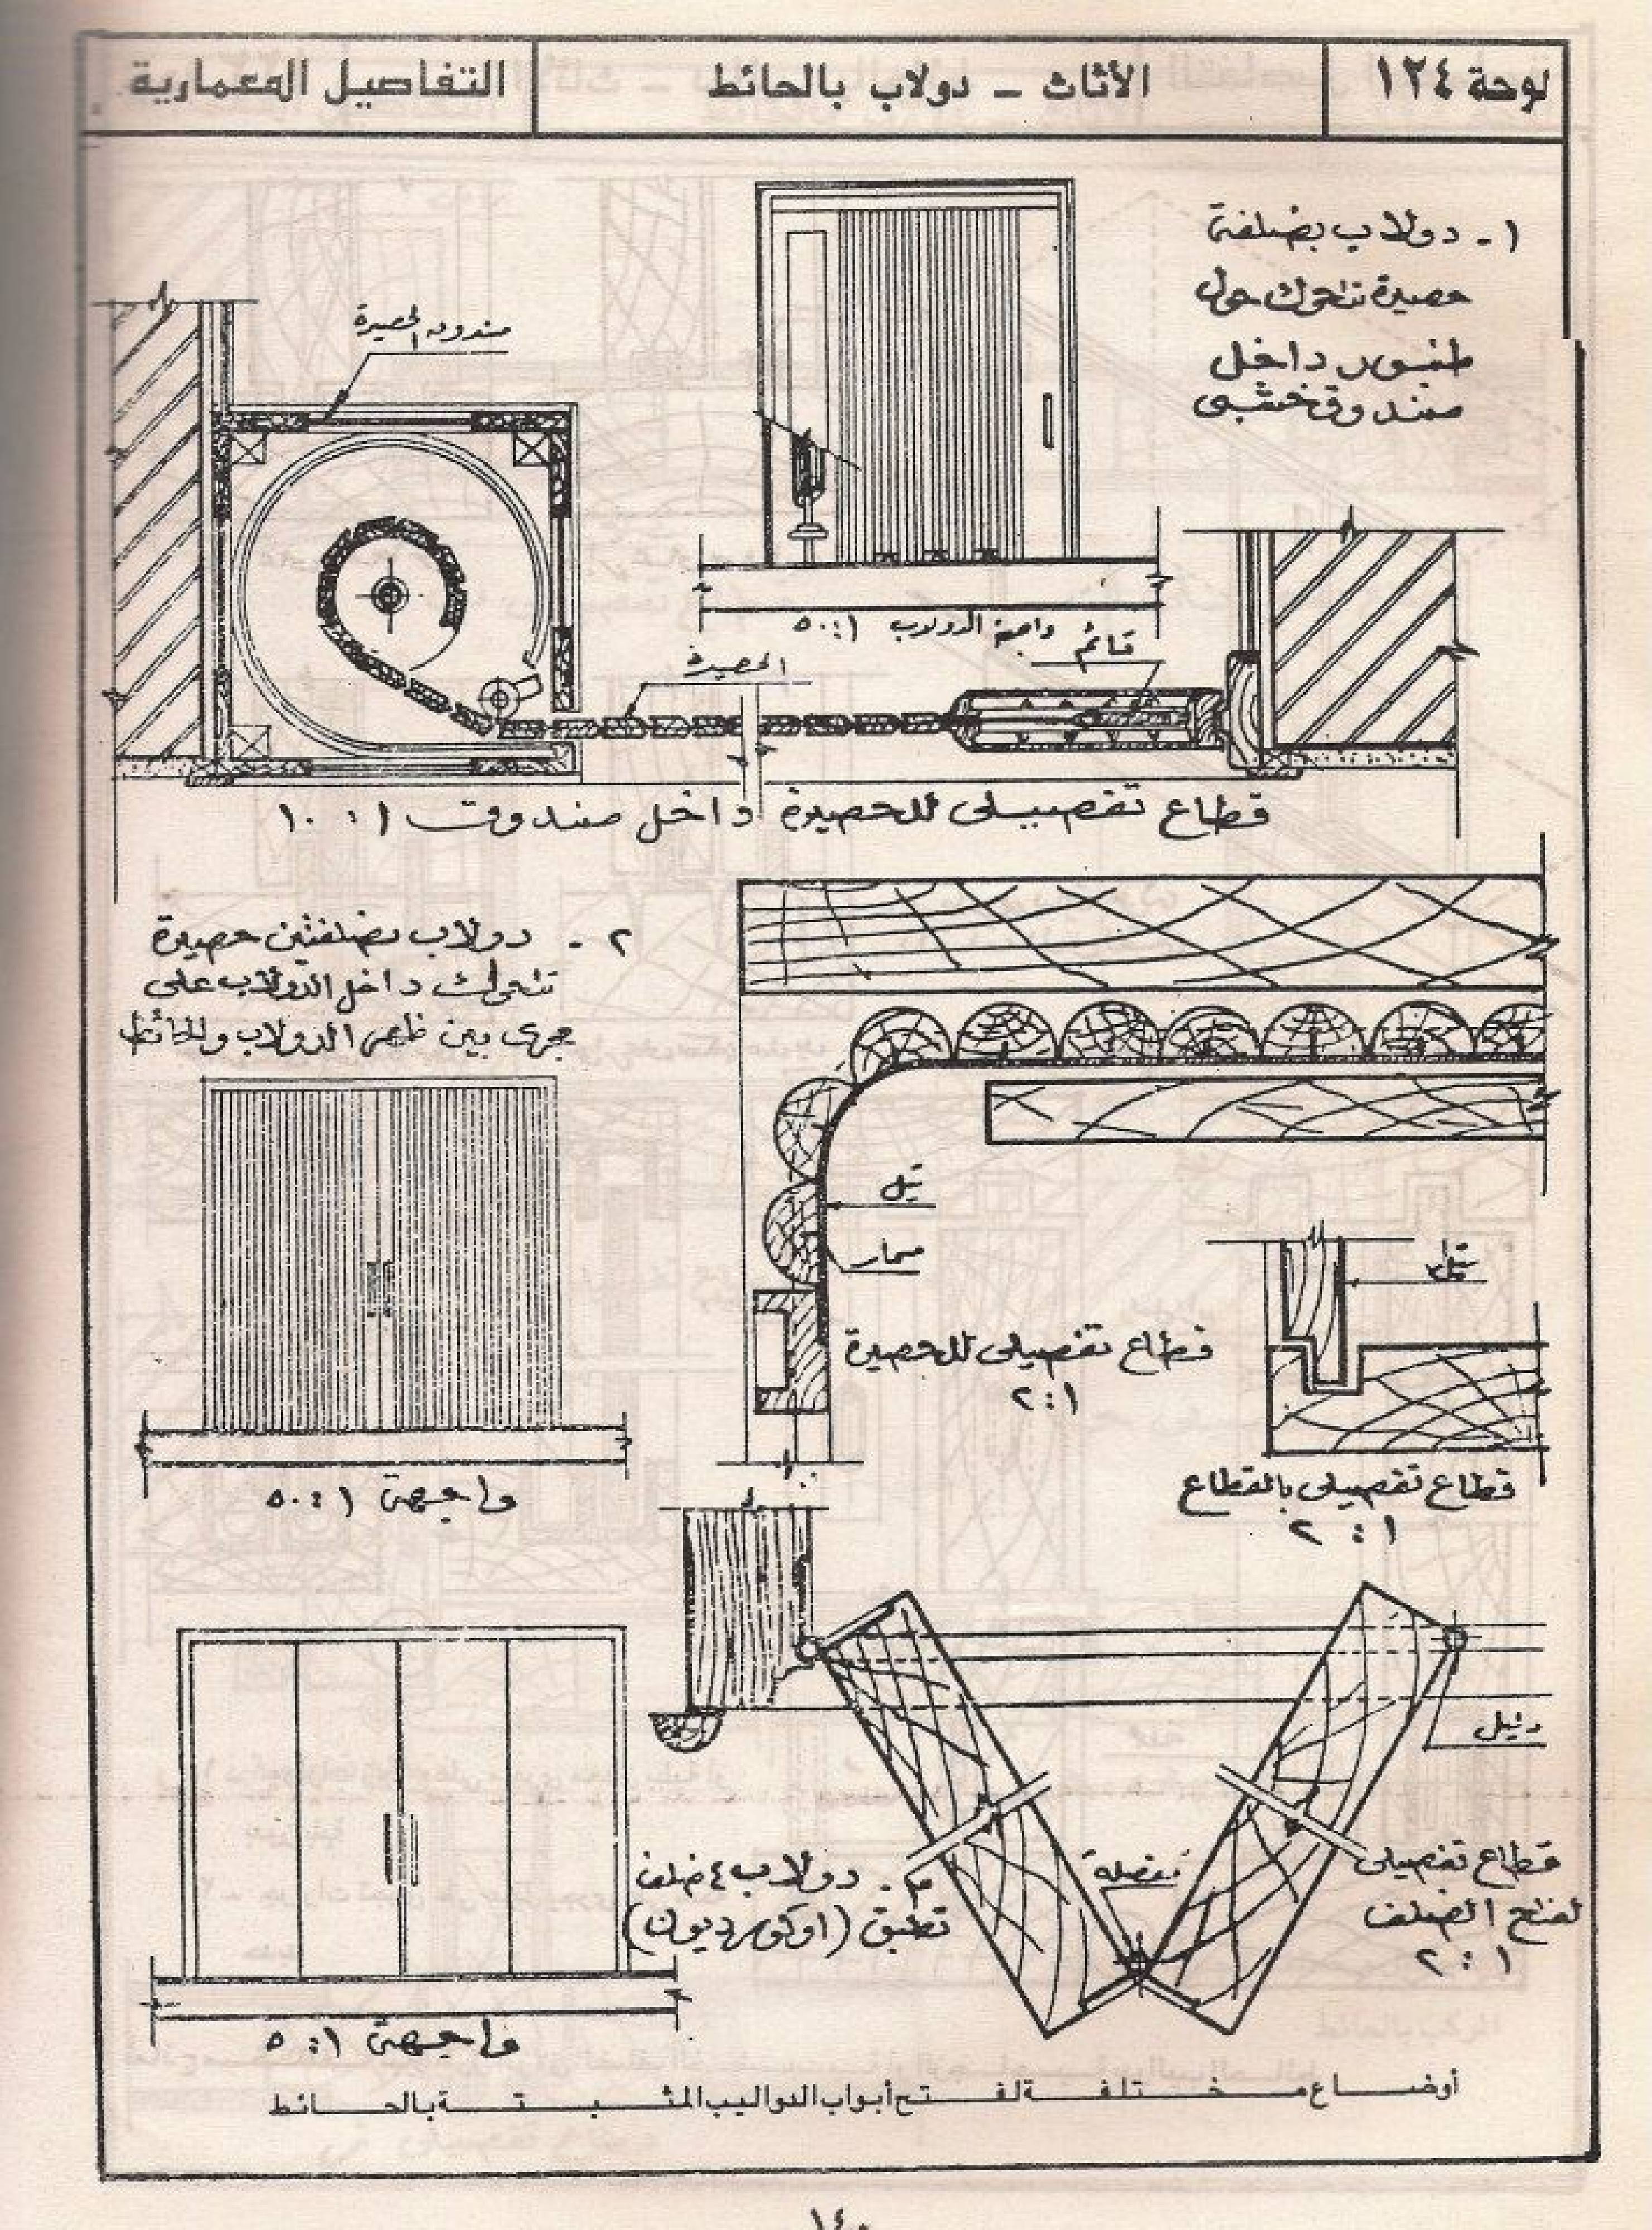 لوحة ١٢٤
الأثاث - دولاب بالحائط
التفاصيل المعمارية
١ - دولاب بضلفة
حصيرة تتحرك حول
طنبور داخل
صندوق خشبى
صندوق الحصيرة
واجهة الدولاب ١ : ٥٠
قائم
الحصيرة
قطاع تفصيلى للحصيرة داخل صندوق ١ : ١٠
٢ - دولاب بضلفتين حصيرة
تتحرك داخل الدولاب على
مجرى بين ظهر الدولاب والحائط
تيل
مسمار
تيل
قطاع تفصيلى للحصيرة
١ : ٢
واجهة ١ : ٥٠
قطاع تفصيلى بالقطاع
١ : ٢
دليل
مفصلة
قطاع تفصيلى
لفتح الضلف
١ : ٢
٣ - دولاب ٤ ضلف
تطبق (اوكورديون)
واجهة ١ : ٥
أوضاع مختلفة لفتح أبواب الدواليب المثبتة بالحائط
١٤٠